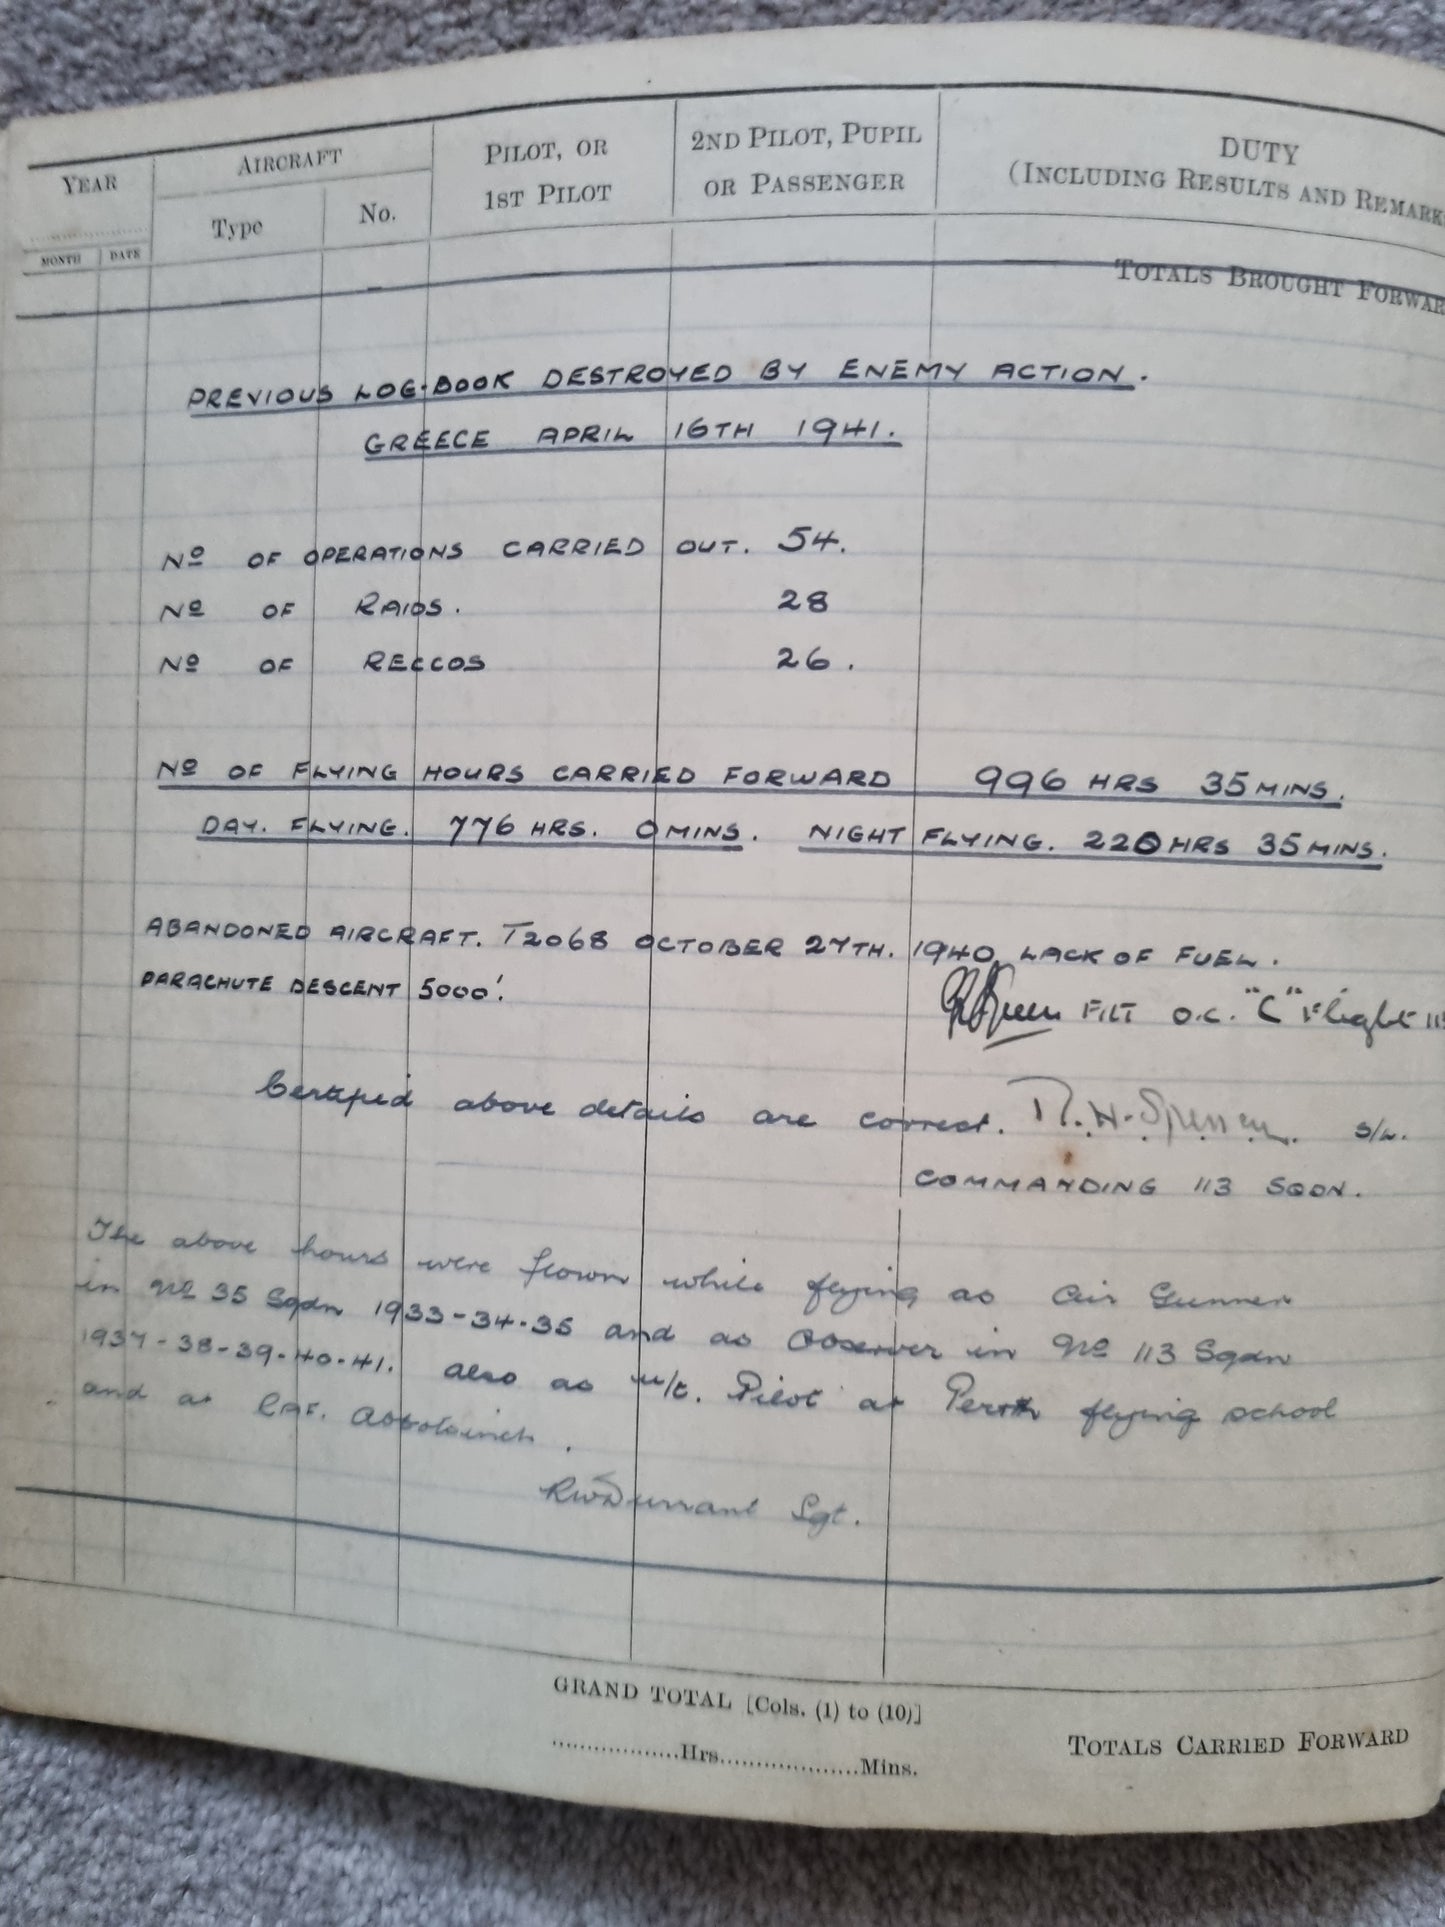 YEAR
AIRCRAFT
PILOT, OR
1ST PILOT
2ND PILOT, PUPIL
OR PASSENGER
DUTY
(INCLUDING RESULTS AND REMARK
Type
No.
MONTH
DATE
TOTALS BROUGHT FORWAR
PREVIOUS LOG-BOOK DESTROYED BY ENEMY ACTION.
GREECE APRIL 16TH 1941.
Nº OF OPERATIONS CARRIED OUT. 54.
Nº OF RAIDS. 28
Nº OF RECCOS 26.
Nº OF FLYING HOURS CARRIED FORWARD 996 HRS 35 MINS.
DAY. FLYING. 776 HRS. 0 MINS. NIGHT FLYING. 220 HRS 35 MINS.
ABANDONED AIRCRAFT. T2068 OCTOBER 27TH. 1940, LACK OF FUEL.
PARACHUTE DESCENT 5000'.
F/LT O.C. "C" Flight 11
Certified above details are correct. R.H. Spencer. S/L.
COMMANDING 113 SQDN.
The above hours were flown while flying as Air Gunner
in Nº 35 Sqdn 1933-34-35 and as Observer in Nº 113 Sqdn
1937-38-39-40-41. also as u/t. Pilot at Perth flying school
and at RAF. Abbotsinch.
RW Durrant Sgt.
GRAND TOTAL [Cols. (1) to (10)]
..................Hrs....................Mins.
TOTALS CARRIED FORWARD